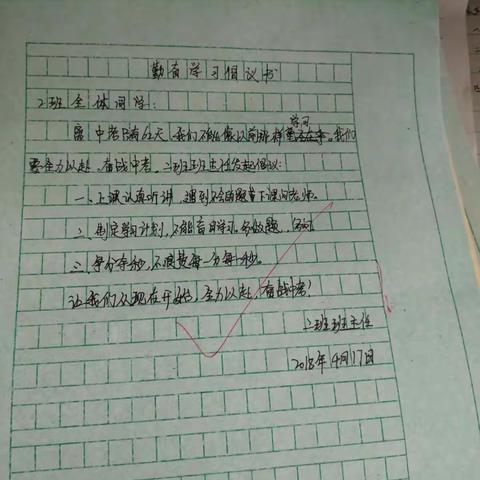 勤奋学习倡议书
二班全体同学:
距中考只有62天,我们不能像以前那样学习。我们
要全力以赴,奋战中考。二班班主任发起倡议:
一、上课认真听讲,遇到不会的题害下课问老师。
二、制定学习计划,不能盲目学习。多做题,
三、争分夺秒,不浪费每一分每一秒。
让我们从现在开始,全力以赴,奋战中考!
二班班主任
2018年4月17日